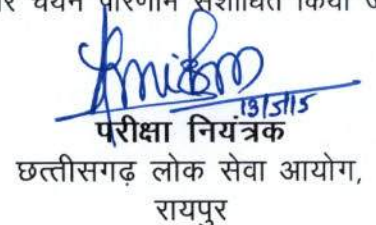 चयन परिणाम संशोधित किया
13/5/15
परीक्षा नियंत्रक
छत्तीसगढ़ लोक सेवा आयोग,
रायपुर